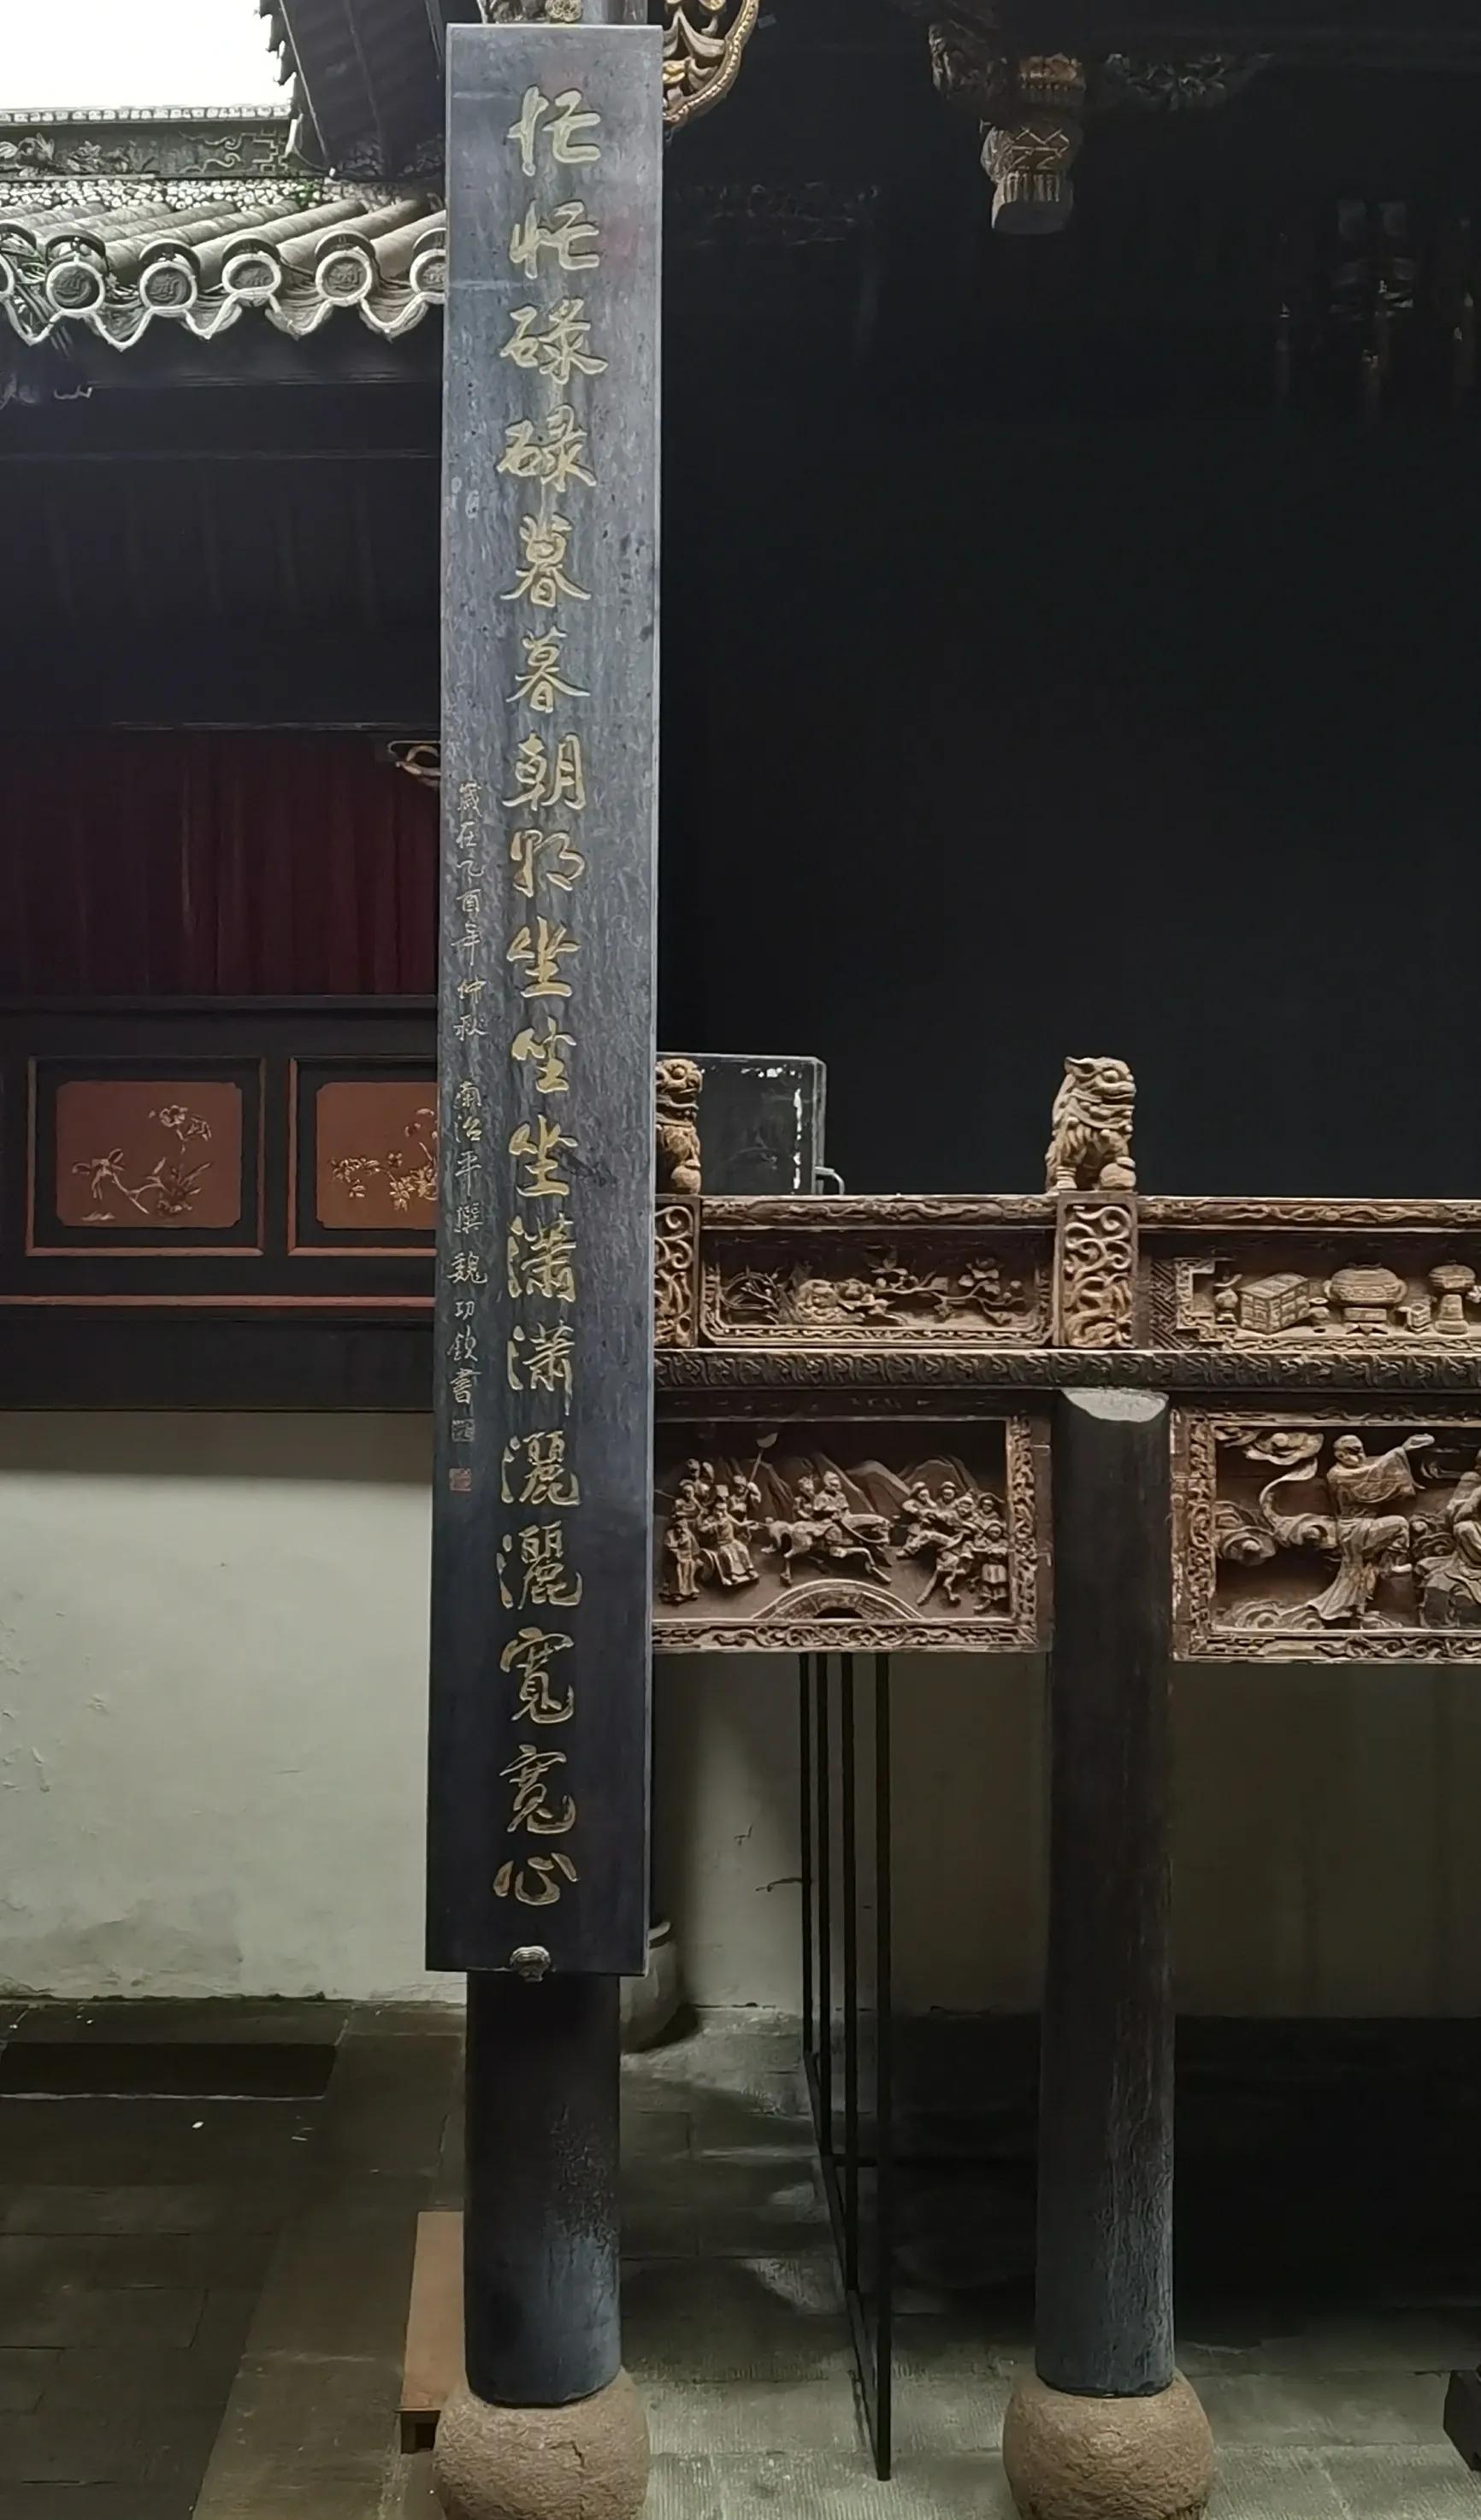 忙忙碌碌暮暮朝朝坐坐坐潇潇灑灑寬寬心
歲在乙酉年仲秋 南治平撰 魏功欽書